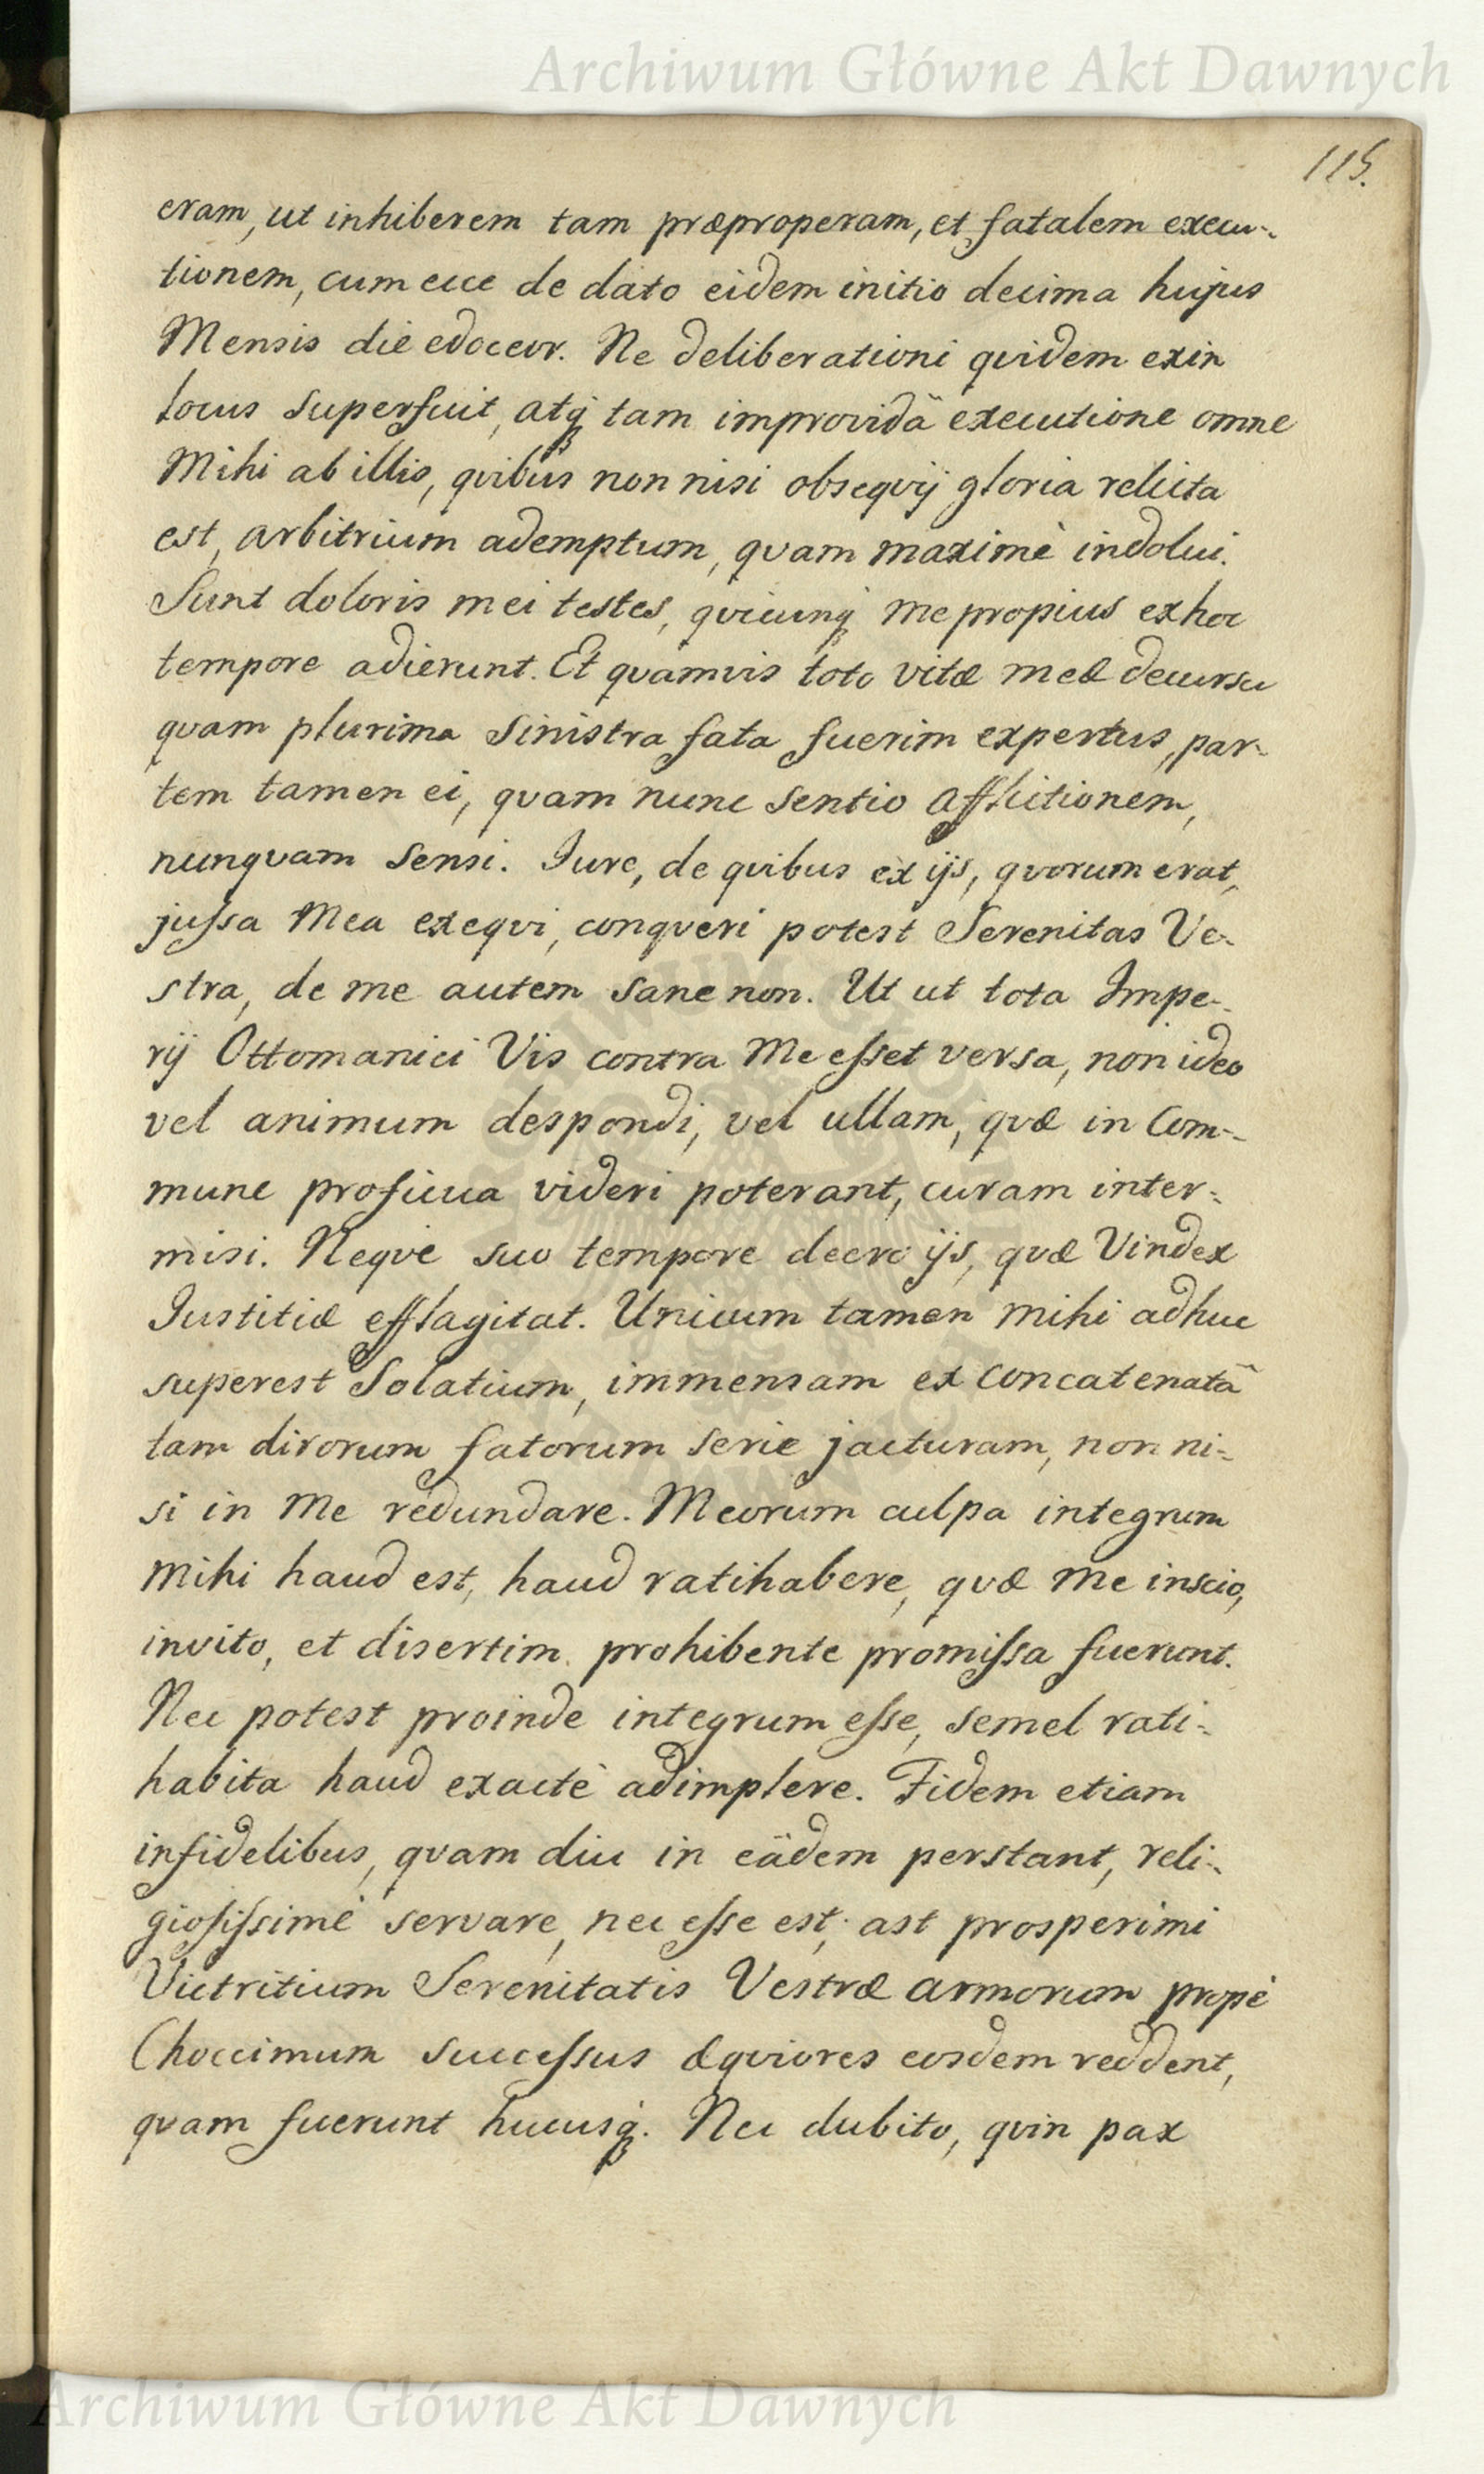 Archiwum Główne Akt Dawnych
115.
eram, ut inhiberem tam præproperam, et fatalem execu-
tionem, cum ecce de dato eidem initio decima hujus
Mensis die edoceor. Ne deliberationi quidem exin
locus superfuit, atq́ tam improvidâ executione omne
Mihi ab illis, quibus non nisi obsequij gloria relicta
est, arbitrium ademptum, quam maximè indolui.
Sunt doloris mei testes, quicunq́ me propius ex hoc
tempore adierunt. Et quamvis toto vitæ meæ decursu
quam plurima sinistra fata fuerim expertus, par-
tem tamen ei, quam nunc sentio afflictionem,
nunquam sensi. Jure, de quibus ex ijs, quorum erat,
jussa Mea exequi, conqueri potest Serenitas Ve-
stra, de me autem sane non. Ut ut tota Impe-
rij Ottomanici Vis contra Me esset versa, non ideo
vel animum despondi, vel ullam, quæ in Com-
mune proficua videri poterant, curam inter-
misi. Neque suo tempore deero ijs, quæ Vindex
Justitiæ efflagitat. Unicum tamen Mihi adhuc
superest Solatium, immensam ex concatenatâ
tam dirorum fatorum serie jacturam, non ni-
si in Me redundare. Meorum culpa integrum
Mihi haud est, haud ratihabere, quæ Me inscio,
invito, et disertim prohibente promissa fuerunt.
Nec potest proinde integrum esse, semel rati-
habita haud exactè adimplere. Fidem etiam
infidelibus, quam diu in eâdem perstant, reli-
giosissimè servare, necesse est; ast prosperimi
Victritium Serenitatis Vestræ armorum propè
Choccimum successus æquiores eosdem reddent,
quam fuerunt hucusq́. Nec dubito, quin pax
Archiwum Główne Akt Dawnych